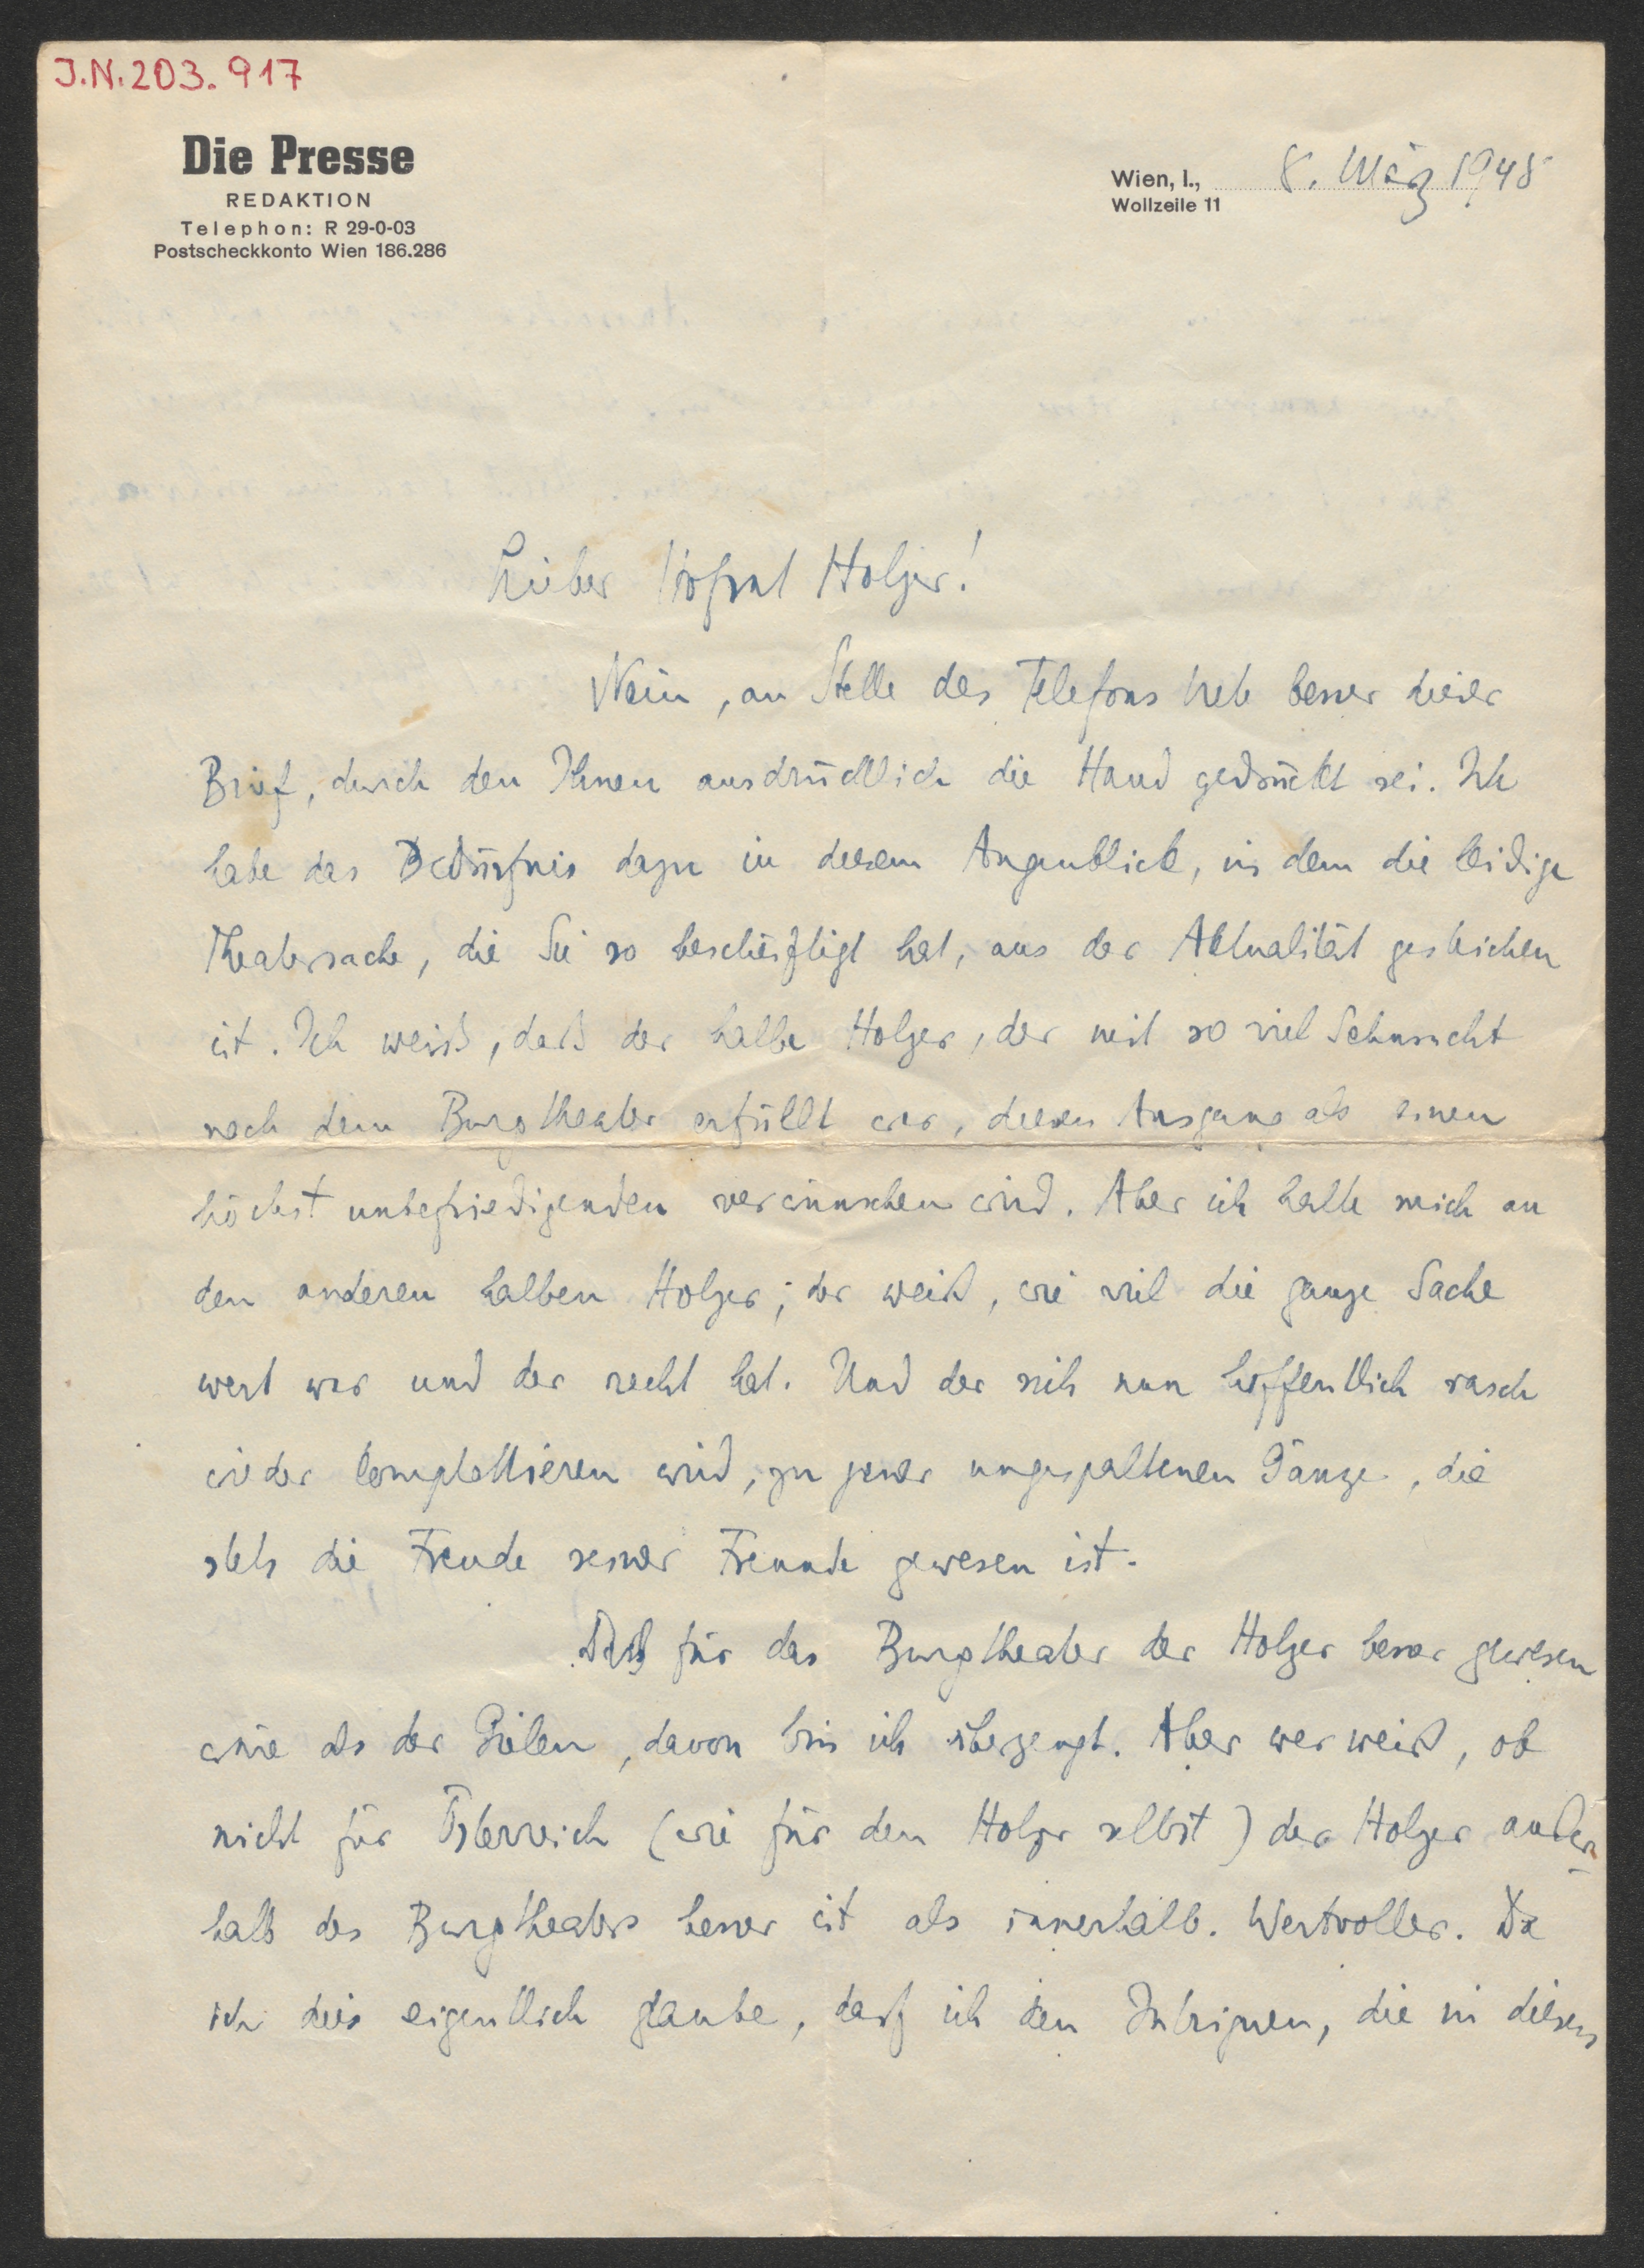 J.N. 203.917
Die Presse
REDAKTION
Telephon: R 29-0-03
Postscheckkonto Wien 186.286
Wien, I., 8. März 1948
Wollzeile 11
Lieber Hofrat Holzer!
Nein, an Stelle des Telefons trete besser dieser
Brief, durch den Ihnen ausdrücklich die Hand gedrückt sei. Ich
habe das Bedürfnis dazu in diesem Augenblick, in dem die leidige
Theatersache, die Sie so beschäftigt hat, aus der Aktualität gewichen
ist. Ich weiss, daß der halbe Holzer, der mit so viel Sehnsucht
nach dem Burgtheater erfüllt war, diesen Ausgang als einen
höchst unbefriedigenden verwünschen wird. Aber ich halte mich an
den anderen halben Holzer; der weiß, wie viel die ganze Sache
wert war und der recht hat. Und der sich nun hoffentlich rasch
wieder komplettieren wird, zu jener ungespaltenen Gänze, die
stets die Freude seiner Freunde gewesen ist.
Daß für das Burgtheater der Holzer besser gewesen
wäre als der Gielen, davon bin ich überzeugt. Aber wer weiß, ob
nicht für Österreich (wie für den Holzer selbst) der Holzer außer-
halb des Burgtheaters besser ist als innerhalb. Wertvoller. Da
ich dies eigentlich glaube, darf ich den Intriguen, die in diesem